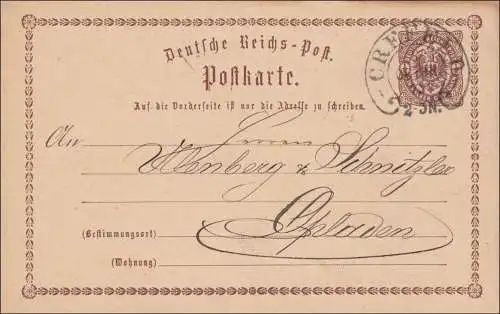 Deutsche Reichs-Post.
Postkarte.
CREFELD
2-3N.
Auf die Vorderseite ist nur die Adresse zu schreiben.
An Herren
Ulenberg & Schnitzler
(Bestimmungsort) Opladen
(Wohnung)